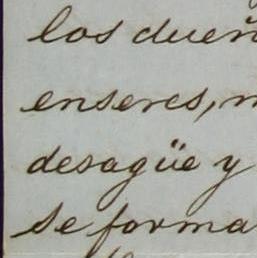 los dueñ
enseres, m
desagüe y
se forma